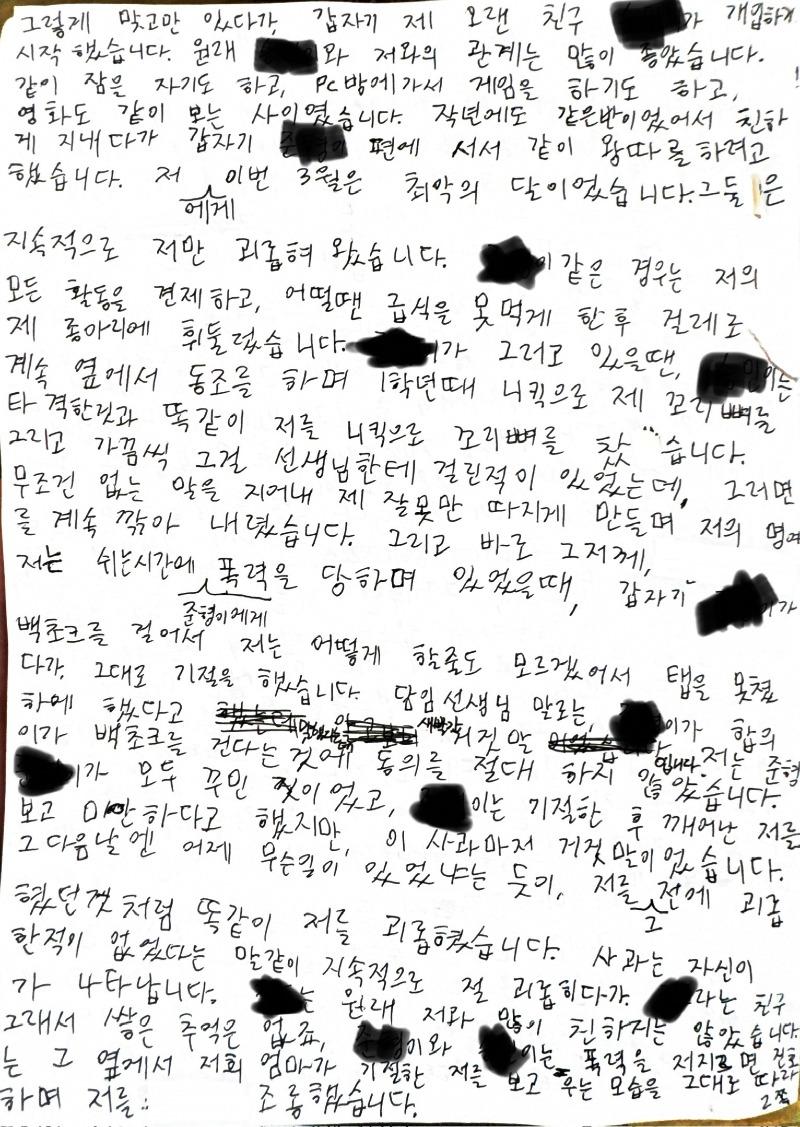 그렇게 맞고만 있다가, 갑자기 제 오랜 친구 가 개입하기
시작했습니다. 원래 와 저와의 관계는 많이 좋았습니다.
같이 잠을 자기도 하고, PC방에가서 게임을 하기도 하고,
영화도 같이 보는 사이였습니다. 작년에도 같은반이었어서 친하
게 지내다가 갑자기 편에 서서 같이 왕따를 하려고
했습니다. 저 이번 3월은 최악의 달이었습니다. 그들은
에게
지속적으로 저만 괴롭혀 왔습니다. 이 같은 경우는 저의
모든 활동을 견제하고, 어떨땐 급식을 못먹게 한후 걸레로
제 종아리에 휘둘렀습니다. 가 그러고 있을땐,
계속 옆에서 동조를 하며 1학년때 니킥으로 제 꼬리뼈를
타격한것과 똑같이 저를 니킥으로 꼬리뼈를 찼습니다.
그리고 가끔씩 그걸 선생님한테 걸린적이 있었는데, 그러면
무조건 없는 말을 지어내 제 잘못만 따지게 만들며 저의 명예
를 계속 깎아 내렸습니다. 그리고 바로 그저께,
저는 쉬는시간에 폭력을 당하며 있었을때, 갑자기 가
준형이에게
백초크를 걸어서 저는 어떻게 할줄도 모르겠어서 탭을 못쳤
다가 그대로 기절을 했습니다. 담임선생님 말로는, 이가 합의
하에 했다고 거짓말
이가 백초크를 건다는 것에 동의를 절대 하지 않았습니다. 저는 준형
가 모두 꾸민 짓이었고, 이는 기절한 후 깨어난 저를
보고 미안하다고 했지만, 이 사과마저 거짓말이었습니다.
그다음날엔 어제 무슨일이 있었냐는 듯이, 저를 전에 괴롭
그
혔던것처럼 똑같이 저를 괴롭혔습니다. 사과는 자신이
한적이 없었다는 말같이 지속적으로 절 괴롭히다가, 라는 친구
가 나타납니다. 는 원래 저와 많이 친하지는 않았습니다.
그래서 쌓은 추억은 없죠. 이와 이는 폭력을 저지르면
는 그 옆에서 저희 엄마가 기절한 저를 보고 우는 모습을 그대로 따라
하며 저를 조롱했습니다.
2쪽